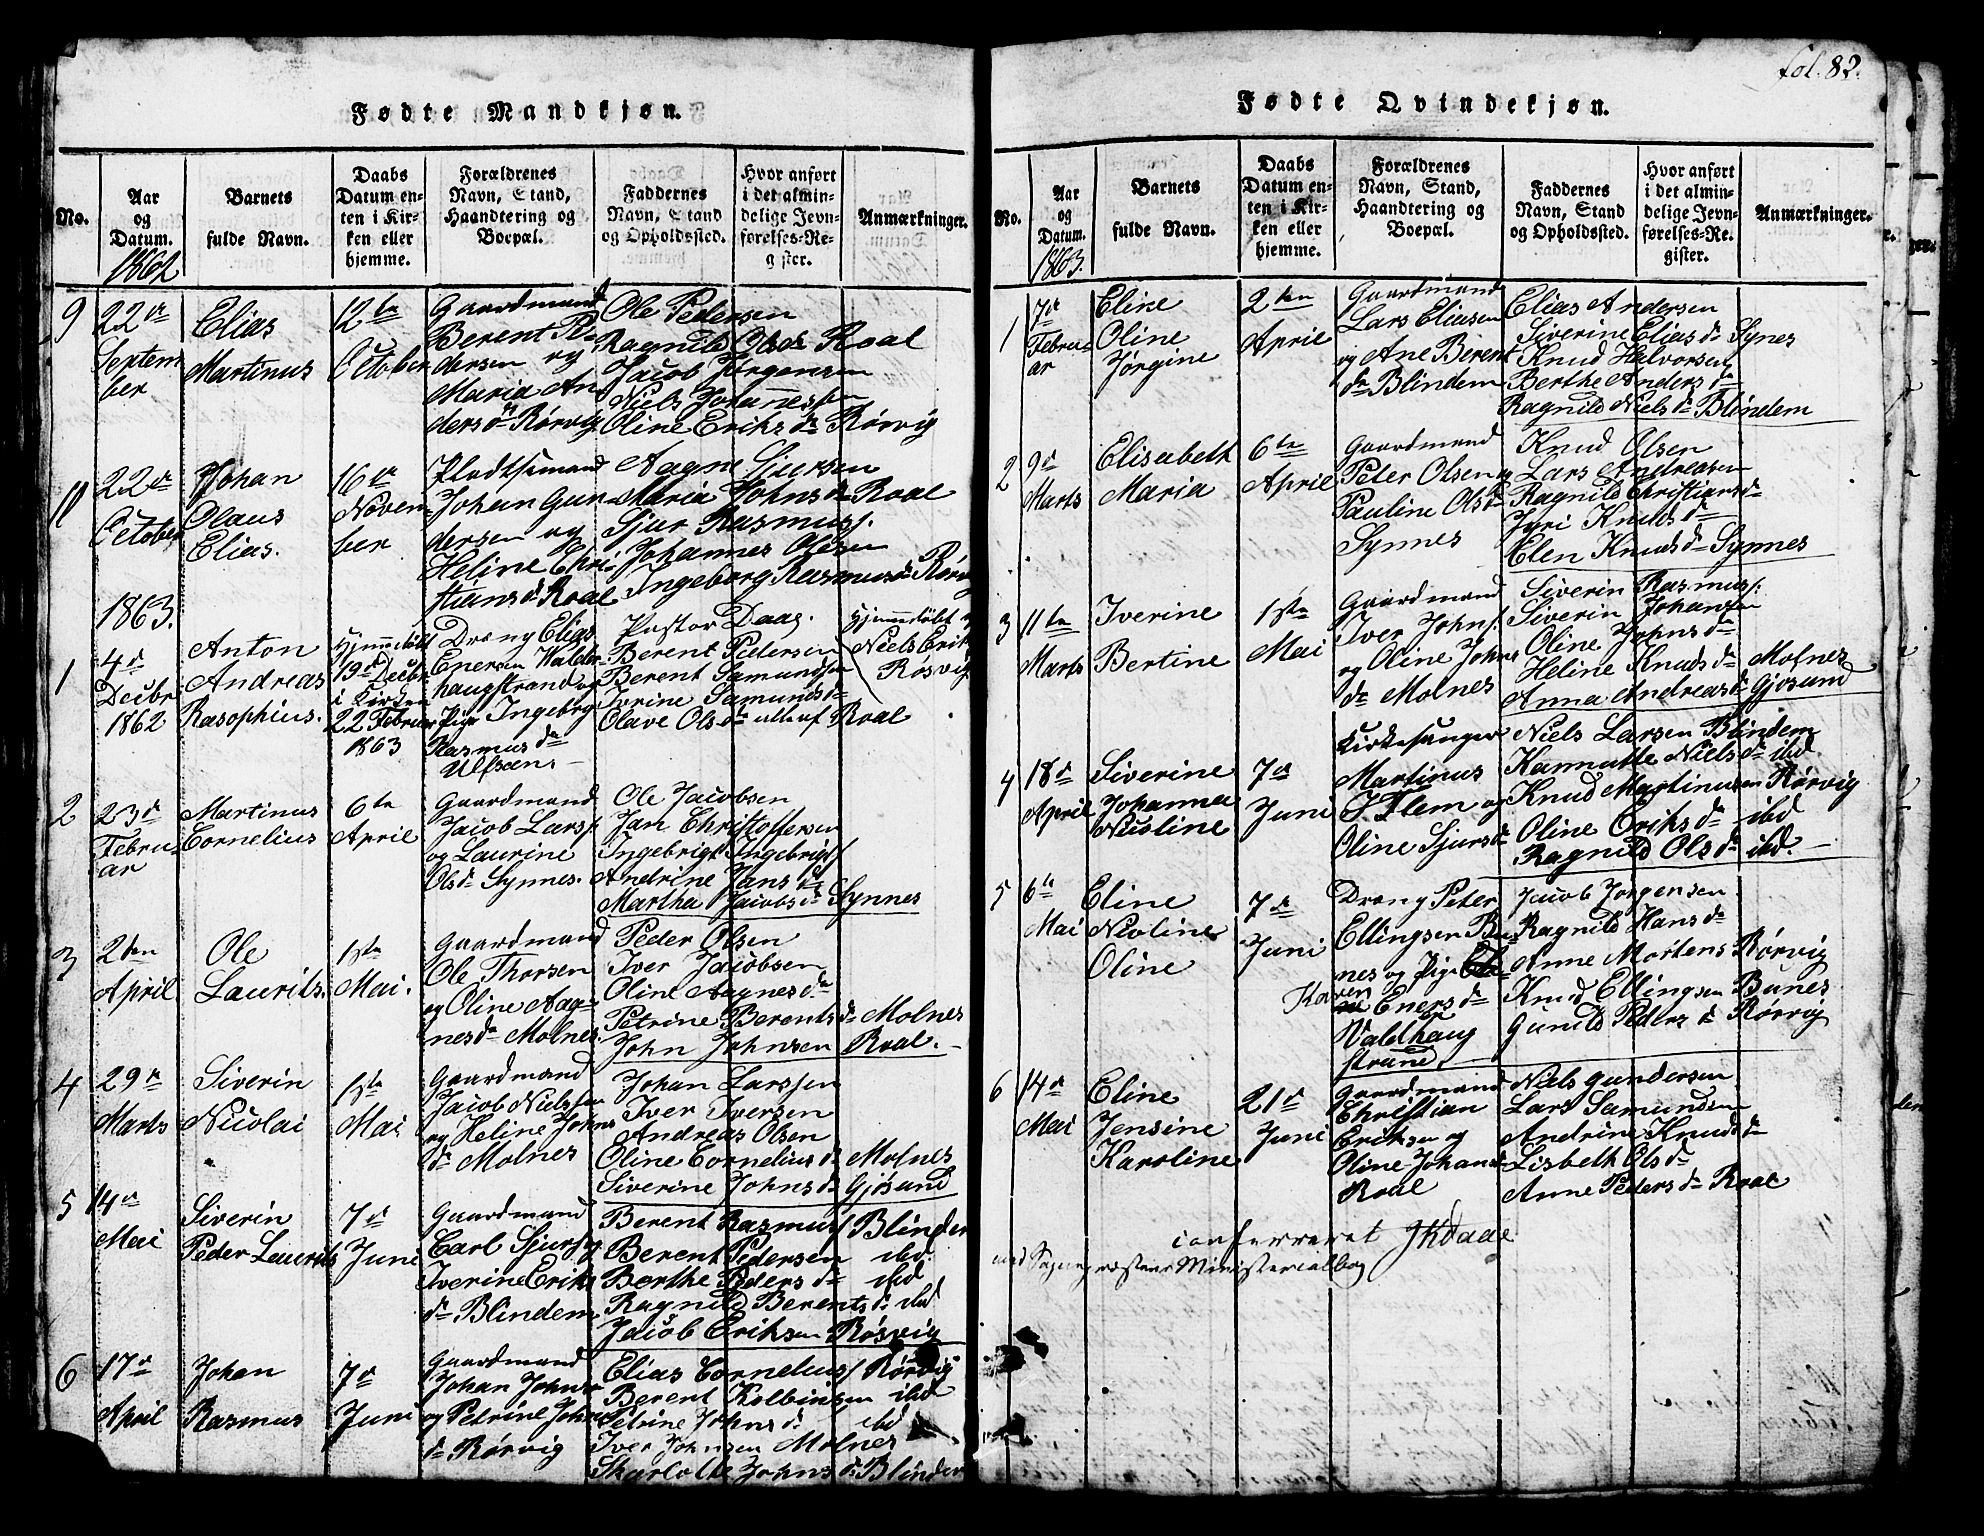 fol. 82.
Fødte Mandkjøn.
No.
Aar
og
Datum.
1862
Barnets
fulde Navn.
Daabs
Datum en-
ten i Kir-
ken eller
hjemme.
Forældrenes
Navn, Stand,
Haandtering og
Boepæl.
Faddernes
Navn, Stand
og Opholdssted.
Hvor anført
i det almin-
delige Jevn-
førelses-Re-
gister.
Anmærkninger.
9
22de
Septem
ber
Elias
Martinus
12te
October
Gaardmand
Berent Pe-
dersen og
Maria An
dersdr Rørvig
Ole Pedersen
Ragnild Olsdr Roal
Jacob Jørgensen
Niels Johannessen
Oline Eriksdr Rørvig
22de
October
Johan
Olaus
Elias.
16de
Novem
ber
Pladtsemand
Johan Gun
dersen og
Heline Chri
stiansdr Roal
Aagne Sjursen
Maria Johnsdr Roal
Sjur Rasmuss.
Johannes Olsen
Ingeborg Rasmusdr Rørvig
1863.
1
4de
Decbr
1862
Anton
Andreas
Rasophius.
Hjemmedøbt
19de Decbr
i Kirken
22 Februar
1863
Dreng Elias
Enersen Walder
haugstrand og
Pige Ingeborg
Rasmusdr
Ulfsæn.
Pastor Daae.
Berent Pedersen
Berent Samundsen
Ivrine Samundsdr
Olave Olsdr alle af Roal
Hjemmedøbt
Niels Erik
Rørvig
2
23de
Febru-
ar
Martinus
Cornelius
6te
April
Gaardmand
Jacob Larss.
og Laurine
Olsdr Synnes.
Ole Jacobsen
Jan Christoffersen
Ingebrigt Ingebrigts
Andrine Jansdr
Martha Jacobsdr Synnes
3
2den
April
Ole
Laurits.
1ste
Mai.
Gaardmand
Ole Thorsen
og Oline Aag-
nesdr Molnes.
Peder Olsen
Iver Jacobsen
Oline Aagnesdr
Petrine Berentsdr Molnes
John Johnsen Roal.
4
29de
Marts
Siverin
Nicolai
1ste
Mai
Gaardmand
Jacob Nielssen
og Heline Johns
dr Molnes
Johan Larssen
Iver Iversen
Andreas Olsen
Oline Corneliusdr Molnes
Siverine Johnsdr Gjøsund
5
14de
Mai
Siverin
Peder Laurits
7de
Juni
Gaardmand
Carl Sjurss. og
Iverine Eriks
dr Blindem
Berent Rasmuss Blindem
Berent Pedersen ibd
Berthe Pedersdr ibd
Ragnild Berentsdr ibd
Jacob Eriksen Rørvig
6
17de
April
Johan
Rasmus
7de
Juni
Gaardmand
Johan Johnsen
og Petrine Johns
dr Rørvig
Elias Cornelius Rørvig
Berent Kolbinsen ibd
Petrine Johnsdr ibd
Iver Johnsen Molnes
Skarlotte Johnsdr Blindem
Fødte Qvindekjøn.
No.
Aar
og
Datum.
1863.
Barnets
fulde Navn.
Daabs
Datum en-
ten i Kir-
ken eller
hjemme.
Forældrenes
Navn, Stand,
Haandtering og
Boepæl.
Faddernes
Navn, Stand
og Opholdssted.
Hvor anført
i det almin-
delige Jevn-
førelses-Re-
gister.
Anmærkninger.
1
7de
Febru-
ar
Eline
Oline
Jørgine
2den
April
Gaardmand
Lars Eliasen
og Ane Berent
dr Blindem
Elias Andersen
Siverine Eliasdr Synes
Knud Halvorsen
Berthe Andersdr
Ragnild Nielsdr Blindem
2
9de
Marts
Elisabeth
Maria
6te
April
Gaardmand
Peter Olsen og
Pauline Olsdr
Synnes
Knud Olsen
Lars Andreasen
Ragnild Christiansdr
Jyri Knudsdr
Elen Knudsdr Synnes
3
11te
Marts
Iverine
Bertine
1ste
Mai
Gaardmand
Iver Johns.
og Oline Johns
dr Molnes
Siverin Rasmuss.
Siverin Johansen
Oline Johnsdr
Heline Knudsdr Molnes
Anna Andreasdr Gjøsund
4
18de
April
Siverine
Johanna
Nicoline
7de
Juni
Kirkesanger
Martinus
J. Flem og
Oline Sjursdr
Niels Larsen Blindem
Hannatte Nielsdr ibd
Knud Martinusen Rørvig
Oline Eriksdr ibd
Ragnild Olsdr ibd.
5
6te
Mai
Eline
Nicoline
Oline
7de
Juni
Dreng Peter
Ellingsen Bu-
nes og Pige
Karen
Enersdr
Valdhaug
strand
Jacob Jørgensen
Ragnild Hansdr
Anne Mortens Rørvig
Knud Ellingsen Bunes
Gunild Pedersdr Rørvig
6
14de
Mai
Eline
Jensine
Karoline
21de
Juni
Gaardmand
Christian
Eriksen og
Oline Johansdr
Roal
Niels Gundersen
Lars Samundsen
Andrine Knudsdr
Lisbeth Olsdr
Anne Pedersdr Roal
conferreret JKDaae
med Sognepræstens Ministerialbog